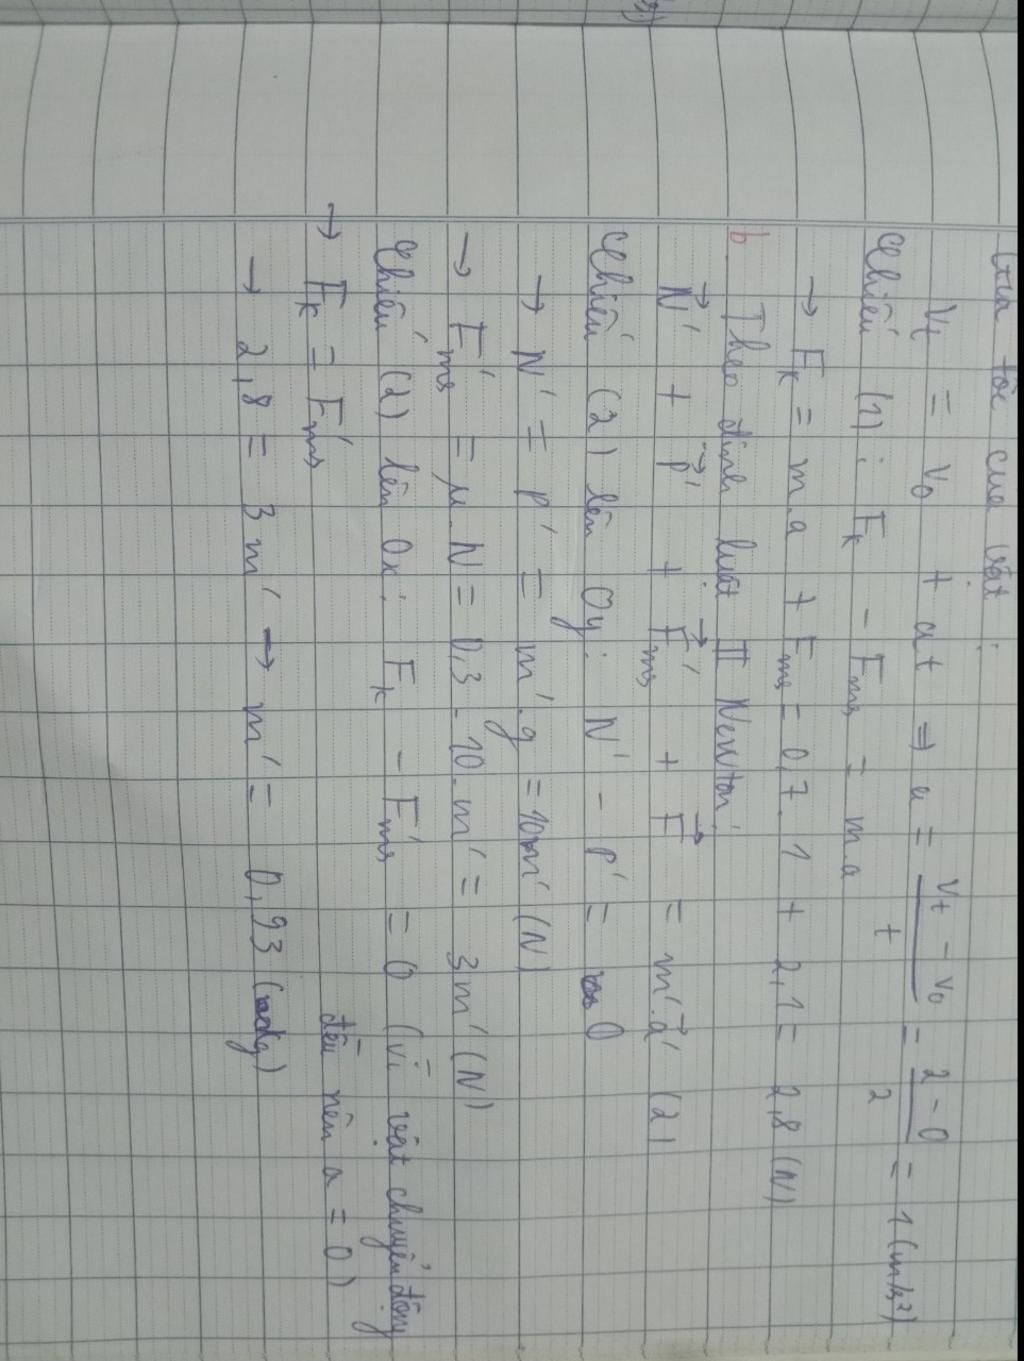 tốc của vật:
Vt = V0 + at ⇒ a = (Vt - V0)/t = (2 - 0)/2 = 1 (m/s²)
Chiếu (1): Fk - Fms = m.a
→ Fk = m.a + Fms = 0,7.1 + 2,1 = 2,8 (N)
b. Theo định luật II Newton:
N⃗' + P⃗' + F⃗'ms + F⃗ = m'.a⃗' (2)
Chiếu (2) lên Oy: N' - P' = 0
→ N' = P' = m'.g = 10m' (N)
→ F'ms = μ.N = 0,3.10.m' = 3m' (N)
Chiếu (2) lên Ox: Fk - F'ms = 0 (vì vật chuyển động
đều nên a = 0)
→ Fk = F'ms
→ 2,8 = 3m' → m' = 0,93 (kg)